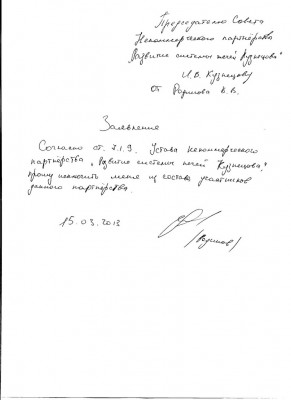 Председателю Совета
Некоммерческого партнёрства
„Развитие системы печей Кузнецова"
И.В. Кузнецову
От В.В.
Заявление
Согласно ст. 7.1.9. Устава некоммерческого
партнёрства „Развитие системы печей Кузнецова",
прошу исключить меня из состава участников
данного партнёрства.
15.03.2013